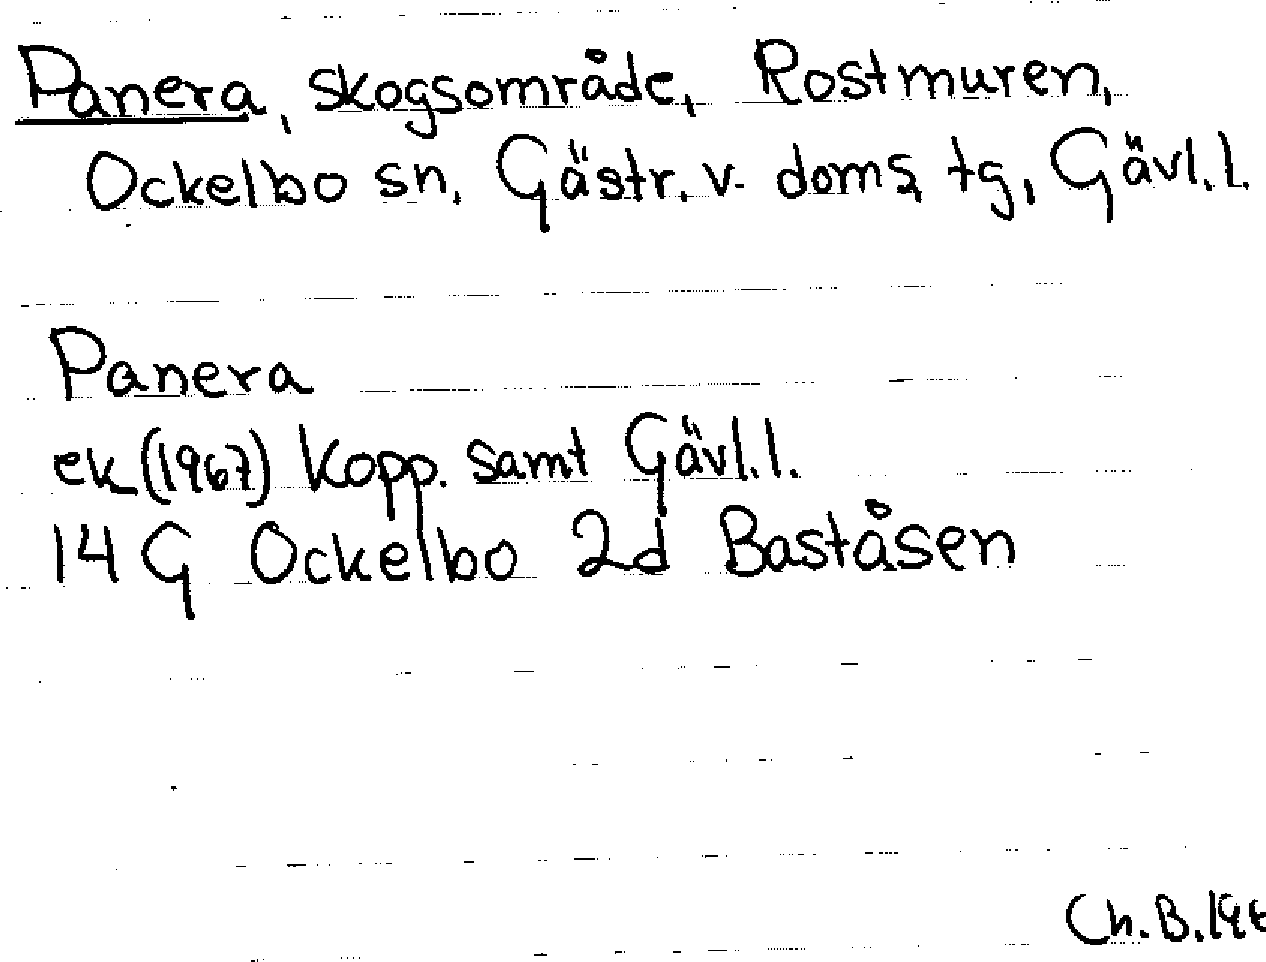 Panera, skogsområde, Rostmuren,
Ockelbo sn. Gästr. v. doms. tg, Gävl.l.
Panera
ek (1967) Kopp. samt Gävl.l.
14 G Ockelbo 2d Baståsen
Ch.B.